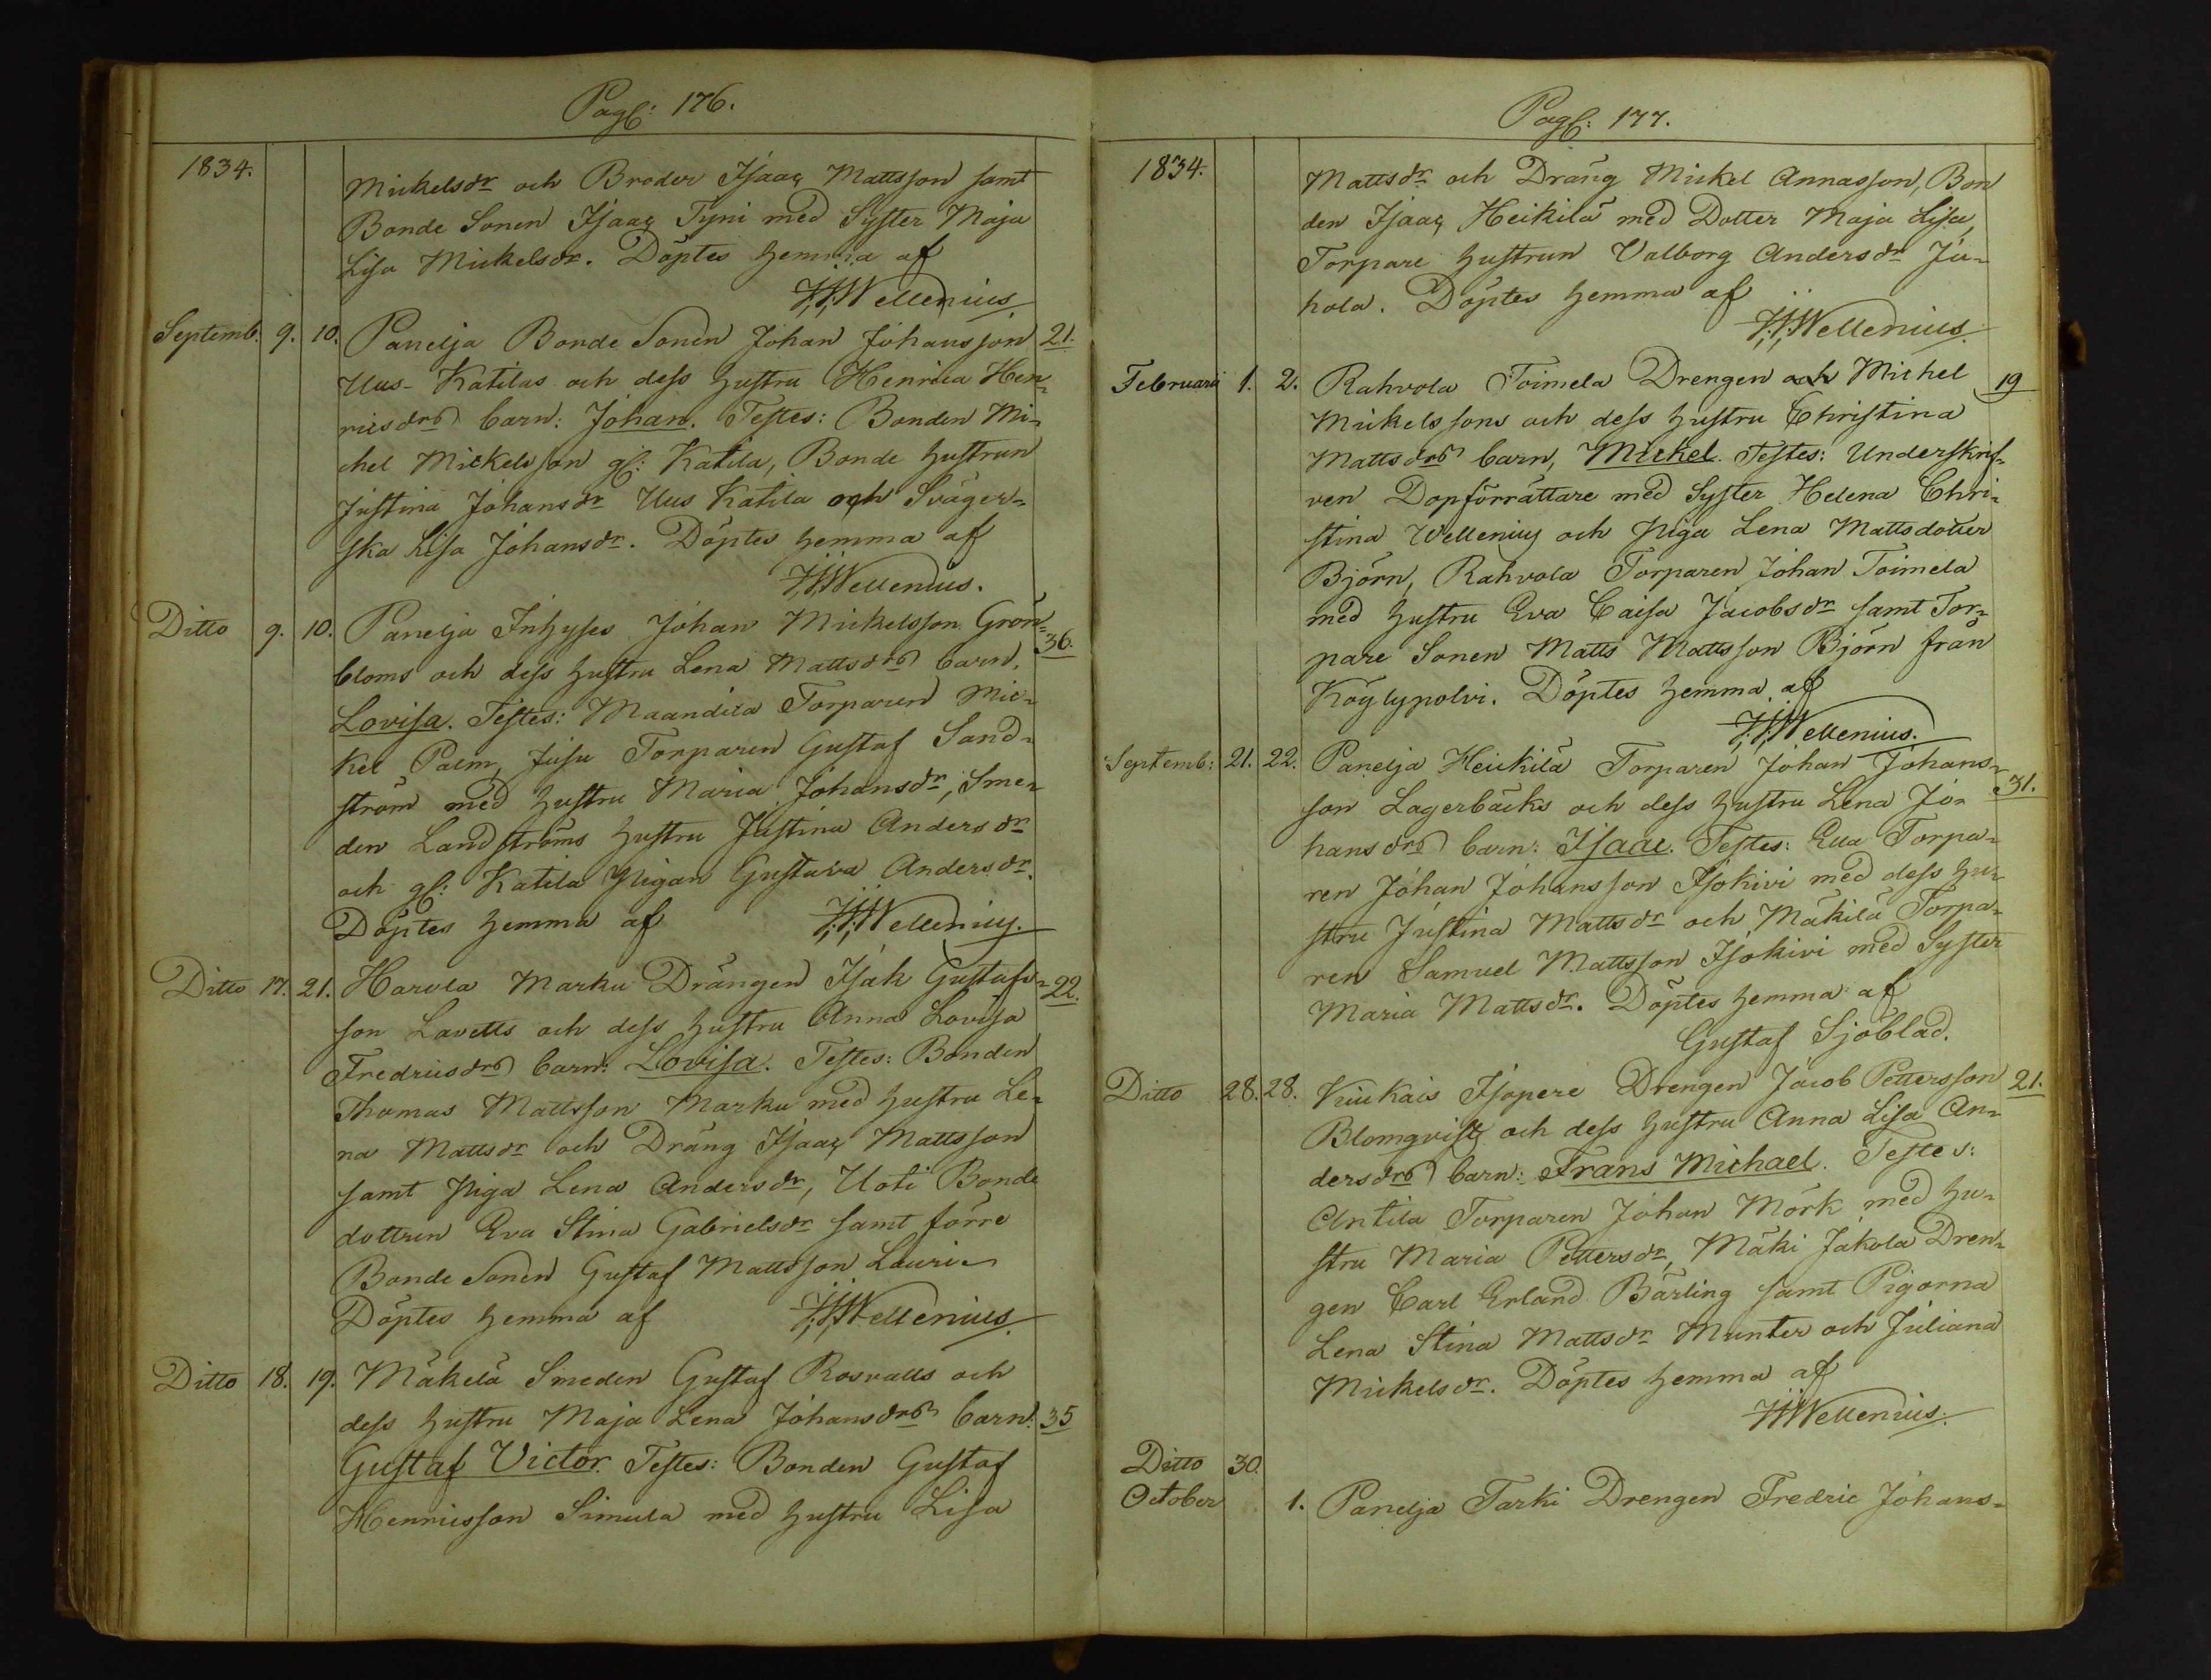 Pag: 176.
1834.
Mickelsdr och Broder Isaac Mattsson samt
Bonde Sonen Isaac Tyni med Syster Maja
Lisa Mickelsdr. Döptes hemma af
J.J. Wellenius.
Septemb. 9. 10. Panelja Bonde Sonen Johan Johansson 21.
Uus-Katilas och dess hustru Henrica Hen-
ricsdrs barn: Johan. Testes: Bonden Mi-
chel Mickelsson gl: Katila, Bonde hustrun
Justina Johansdr Uus Katila och Sväger-
ska Lisa Johansdr. Döptes hemma af
J.J. Wellenius.
Ditto 9. 10. Panelja Inhyses Johan Mickelsson Grön- 36.
bloms och dess hustru Lena Mattsdrs barn,
Lovisa. Testes: Maandila Torparen Mic-
kel Palm, Juju Torparen Gustaf Sand-
ström med hustru Maria Johansdr, Sme-
den Landströms hustru Justina Andersdr
och gl: Katila Pigan Gustava Andersdr.
Döptes hemma af J.J. Wellenius.
Ditto 17. 21. Harola Marku Drängen Isak Gustafs- 22.
son Lavetts och dess hustru Anna Lovisa
Fredricsdrs barn: Lovisa. Testes: Bonden
Thomas Mattsson Marku med hustru Le-
na Mattsdr och Dräng Isaac Mattsson
samt Piga Lena Andersdr, Uoti Bonde
dottren Eva Stina Gabrielsdr samt förre
Bonde Sonen Gustaf Mattsson Lauri
Döptes hemma af J.J. Wellenius.
Ditto 18. 19. Mäkelä Smeden Gustaf Rosvalls och
dess hustru Maja Lena Johansdrs barn: 35
Gustaf Victor. Testes: Bonden Gustaf
Henricsson Simula med hustru Lisa
Pag: 177.
1834.
Mattsdr och Dräng Mickel Annasson, Bon
den Isaac Heikilä med Dotter Maja Lisa,
Torpare hustrun Valborg Andersdr Ju-
hola. Döptes hemma af
J.J. Wellenius.
Februarii 1. 2. Rahvola Toimela Drengen och Michel 19
Mickelssons och dess hustru Christina
Mattsdrs barn, Mickel. Testes: Underskrif-
ven Dopförrättare med Syster Helena Chri-
stina Wellenius och Piga Lena Mattsdotter
Björn, Rahvola Torparen Johan Toimela
med hustru Eva Caisa Jacobsdr samt Tor-
pare Sonen Matts Mattsson Björn från
Köylypolvi. Döptes hemma af
J.J. Wellenius.
Septemb: 21. 22. Panelja Heikilä Torparen Johan Johans-
son Lagerbäcks och dess hustru Lena Jo- 31.
hansdrs barn: Isaac. Testes: Eua Torpa-
ren Johan Johansson Isokivi med dess hu-
stru Justina Mattsdr och Mäkilä Torpa-
ren Samuel Mattsson Isokivi med Syster
Maria Mattsdr. Döptes hemma af
Gustaf Sjöblad.
Ditto 28. 28. Kiukais Isopere Drengen Jacob Pettersson 21.
Blomqvists och dess hustru Anna Lisa An-
dersdrs barn: Frans Michael. Testes:
Antila Torparen Johan Mörk med hu-
stru Maria Pettersdr, Mäki Jakola Dren-
gen Carl Erland Bärling samt Pigorna
Lena Stina Mattsdr Munter och Juliana
Mickelsdr. Döptes hemma af
J.J. Wellenius.
Ditto 30.
October 1. Panelja Tarki Drengen Fredric Johans-